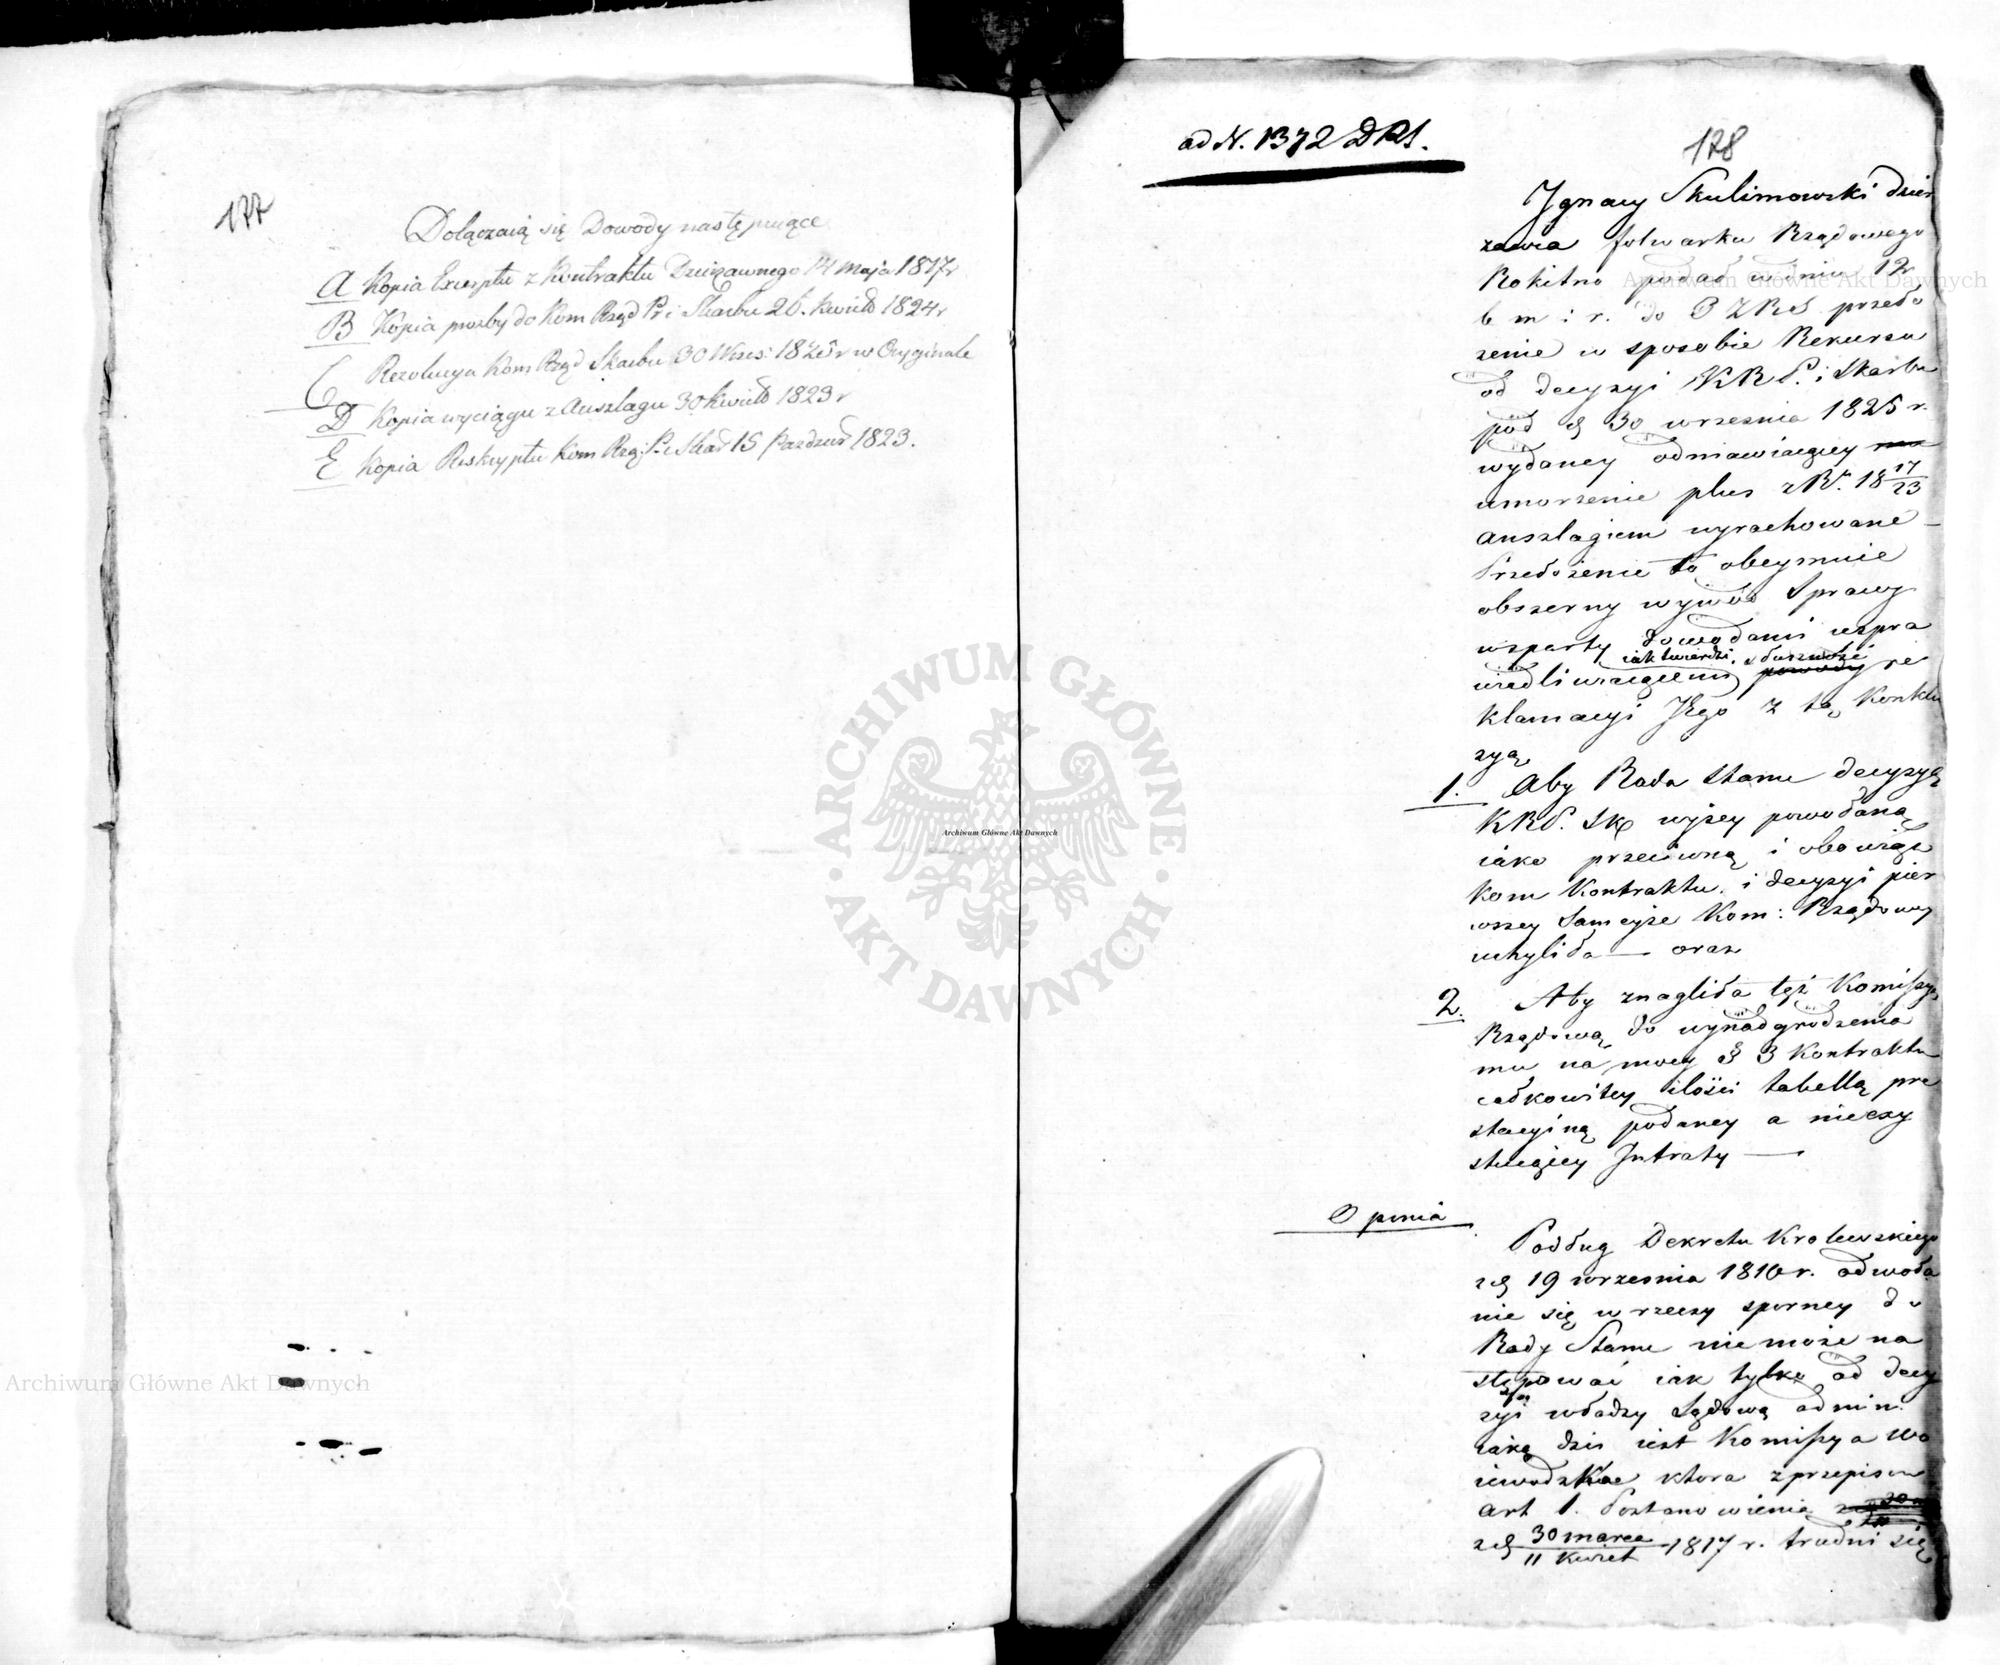 177
Dołączaią się Dowody następuiące
A Kopia Excerptu z Kontraktu Dzierzawnego 14 Maja 1817r
B Kopia prozby do Kom Rząd Pr i Skarbu 26. Kwiet 1824r
C Rezolucya Kom Rząd Skarbu 30 Wrzes: 1825r w Oryginale
D Kopia wyciągu z Anszlagu 30 Kwiet 1823 r
E Kopia Reskryptu Kom Rzą: P. i Skar 15 Pazdzier 1823.
ad N. 1372 DRS.
128
Ignacy Skulimowski dzier
zawca folwarku Rządowego
Rokitno podał w dniu 12
b m i r. do RS przeło
zenie w sposobie Rekursu
od decyzyi KRP. i Skarbu
pod d 30 wrzesnia 1825 r.
wydaney odmawiaiącey
umorzenie plus z R. 18 17/23
anszlagiem wyrachowane
Przełożenie to obeymuie
obszerny wywód Sprawy
wsparty dowodami uspra
iak twierdzi, słuszność
wiedliwiaiącemi powody re
klamacyi Jego z tą konklu
zyą
1. Aby Rada Stanu decyzyą
KRP. Sk wyżey powołaną
iako przeciwną i obowiąz
kom Kontraktu, i decyzyi pier
wszey Sameyże Kom: Rządowey
uchyliła — oraz
2. Aby znagliła tęż Komissyą
Rządową do wynadgrodzenia
mu na mocy § 3 Kontraktu
całkowitey ilości tabellą pre
stacyiną podaney a nieczy
stuiącey Intraty —
Opinia
Podług Dekretu Krolewskiego
z d 19 wrzesnia 1810 r. odwoła
nie się w rzeczy sporney do
Rady Stanu nie może na
stępować iak tylko od decy
zyi władzy Sądową admin.
iaką dzis iest Komissya Wo
iewodzka ktora z przepisu
art 1. Postanowienia
z d 30 marca / 11 Kwiet 1817 r. trudni się
Archiwum Główne Akt Dawnych
Archiwum Główne Akt Dawnych
Archiwum Główne Akt Dawnych
ARCHIWUM GŁÓWNE · AKT DAWNYCH ·